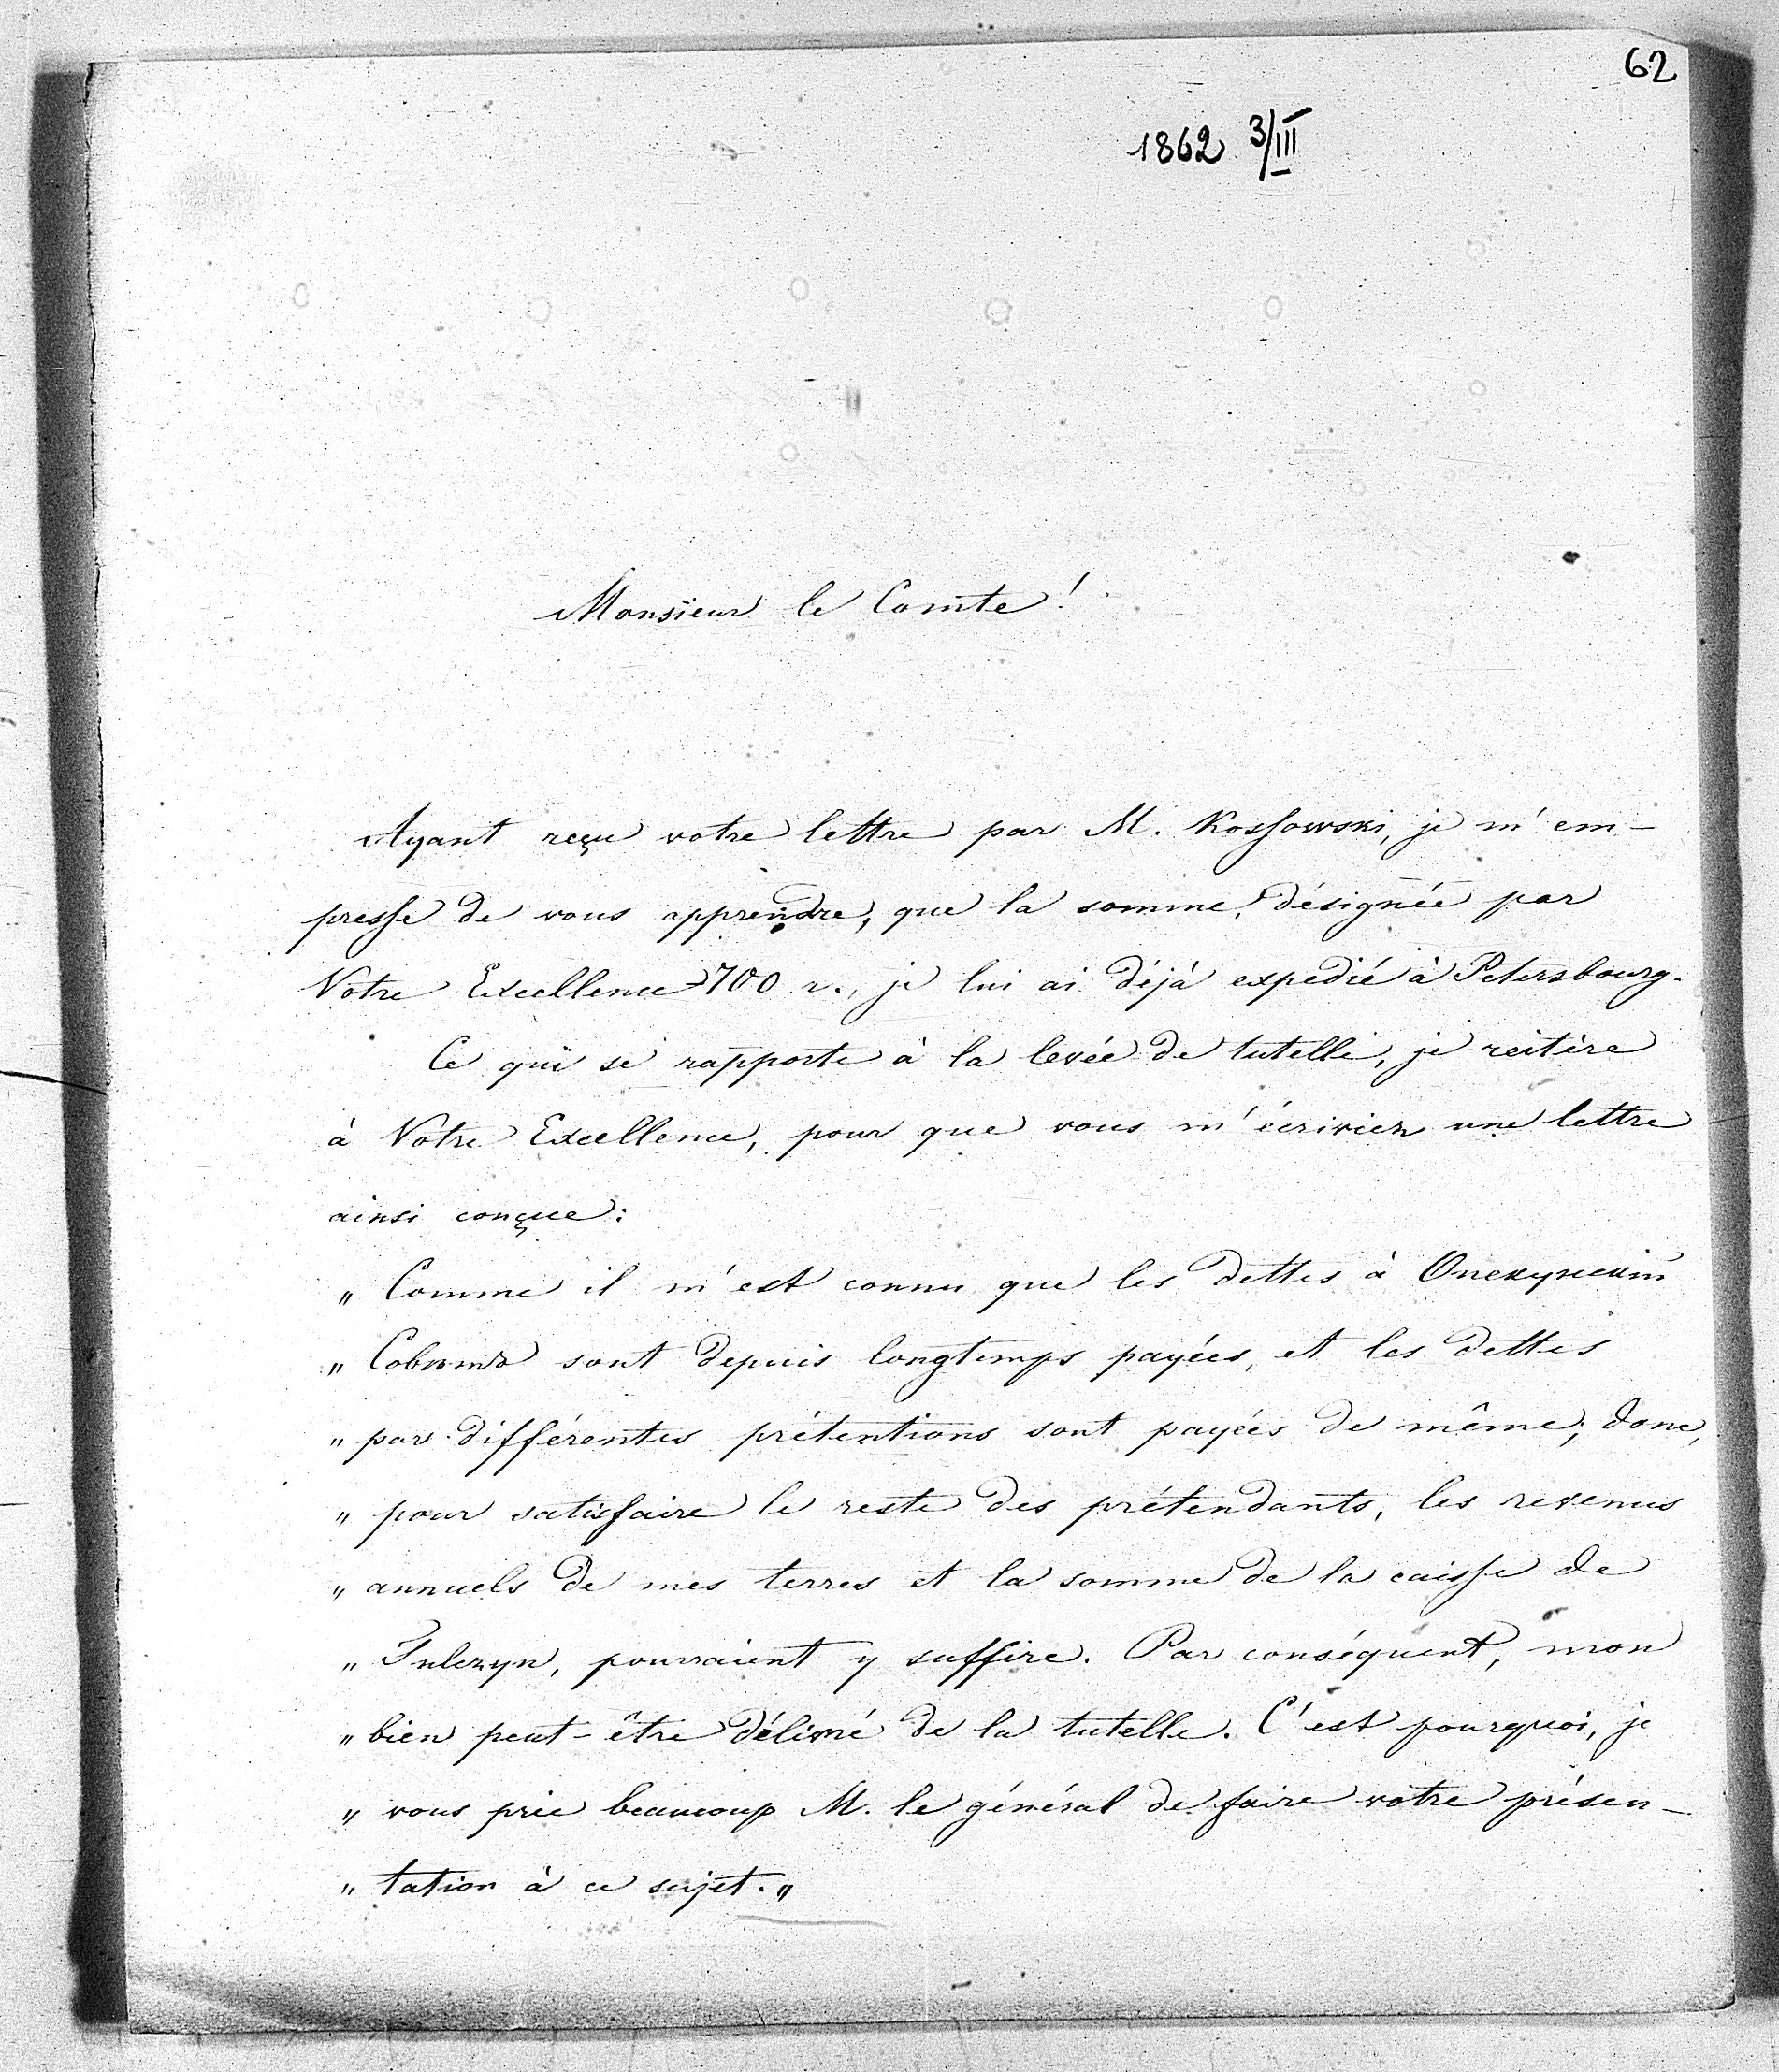 62
1862 3/III
Monsieur le Comte!
Ayant reçu votre lettre par M. Kossowski, je m'em-
presse de vous apprendre, que la somme, désignée par
Votre Excellence 700 r., je lui ai déjà expedié à Petersbourg.
Ce qui se rapporte à la levée de tutelle, je reitère
à Votre Excellence, pour que vous m'écriviez une lettre
ainsi conçue:
„ Comme il m'est connu que les dettes à Опекунскій
„ Совѣтъ sont depuis longtemps payées, et les dettes
„ par différentes prétentions sont payées de même; donc,
„ pour satisfaire le reste des prétendants, les revenus
„ annuels de mes terres et la somme de la caisse de
„ Tulczyn, pourraient y suffire. Par conséquent, mon
„ bien peut-être délivré de la tutelle. C'est pourquoi, je
„ vous prie beaucoup M. le général de faire votre présen-
„ tation à ce sujet. „